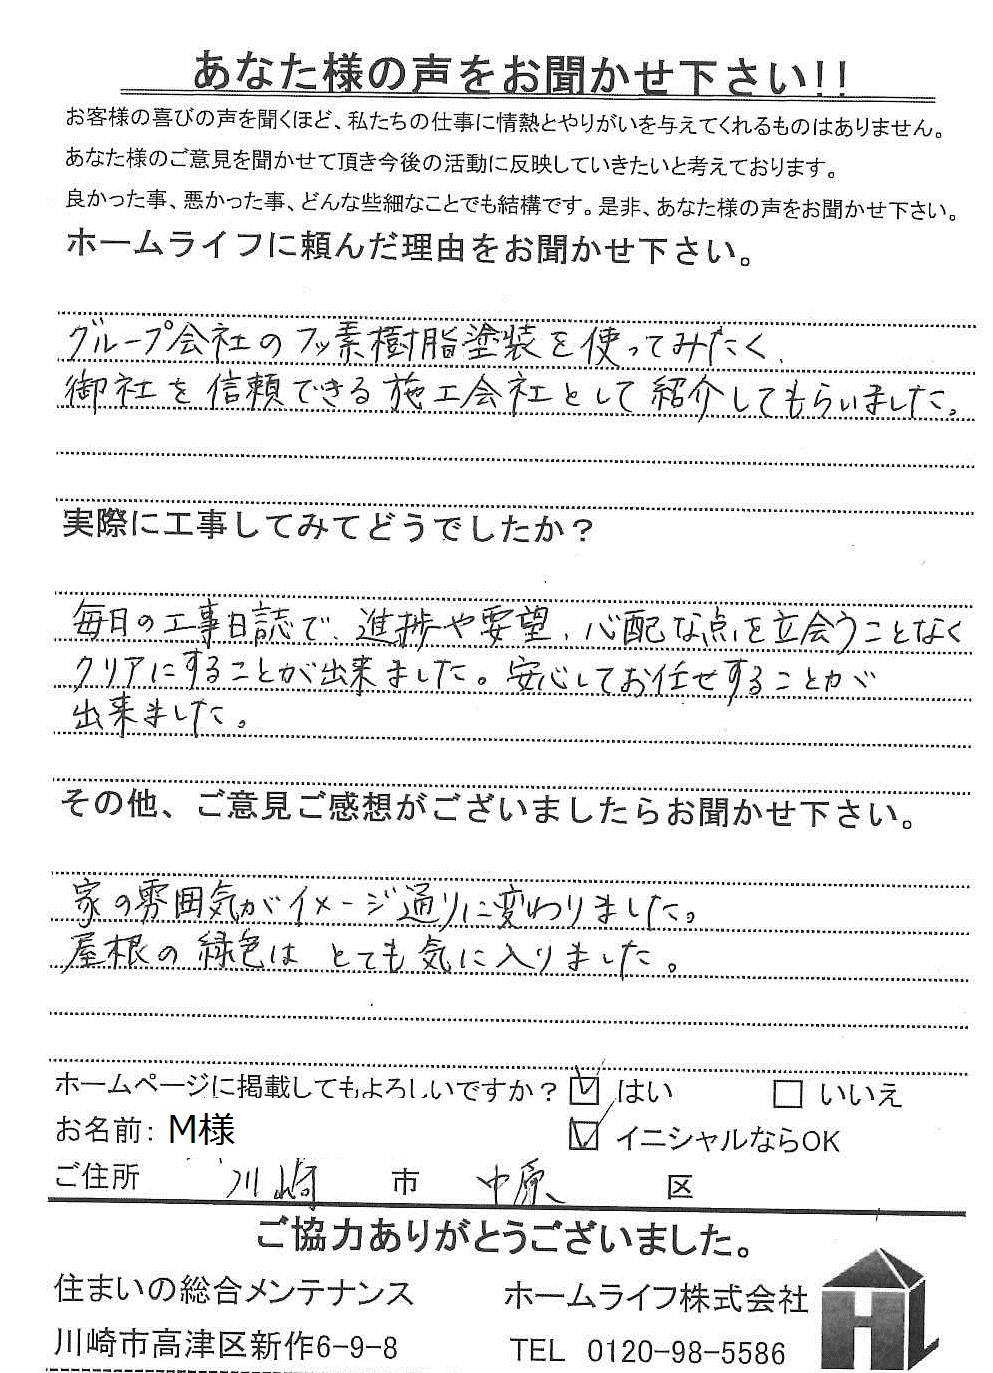 あなた様の声をお聞かせ下さい!!
お客様の喜びの声を聞くほど、私たちの仕事に情熱とやりがいを与えてくれるものはありません。
あなた様のご意見を聞かせて頂き今後の活動に反映していきたいと考えております。
良かった事、悪かった事、どんな些細なことでも結構です。是非、あなた様の声をお聞かせ下さい。
ホームライフに頼んだ理由をお聞かせ下さい。
グループ会社のフッ素樹脂塗装を使ってみたく、
御社を信頼できる施工会社として紹介してもらいました。
実際に工事してみてどうでしたか？
毎日の工事日誌で、進捗や要望、心配な点を立会うことなく
クリアにすることが出来ました。安心してお任せすることが
出来ました。
その他、ご意見ご感想がございましたらお聞かせ下さい。
家の雰囲気がイメージ通りに変わりました。
屋根の緑色は とても気に入りました。
ホームページに掲載してもよろしいですか？ はい いいえ
お名前: M様 イニシャルならOK
ご住所 川崎 市 中原 区
ご協力ありがとうございました。
住まいの総合メンテナンス ホームライフ株式会社
川崎市高津区新作6-9-8 TEL 0120-98-5586
HL